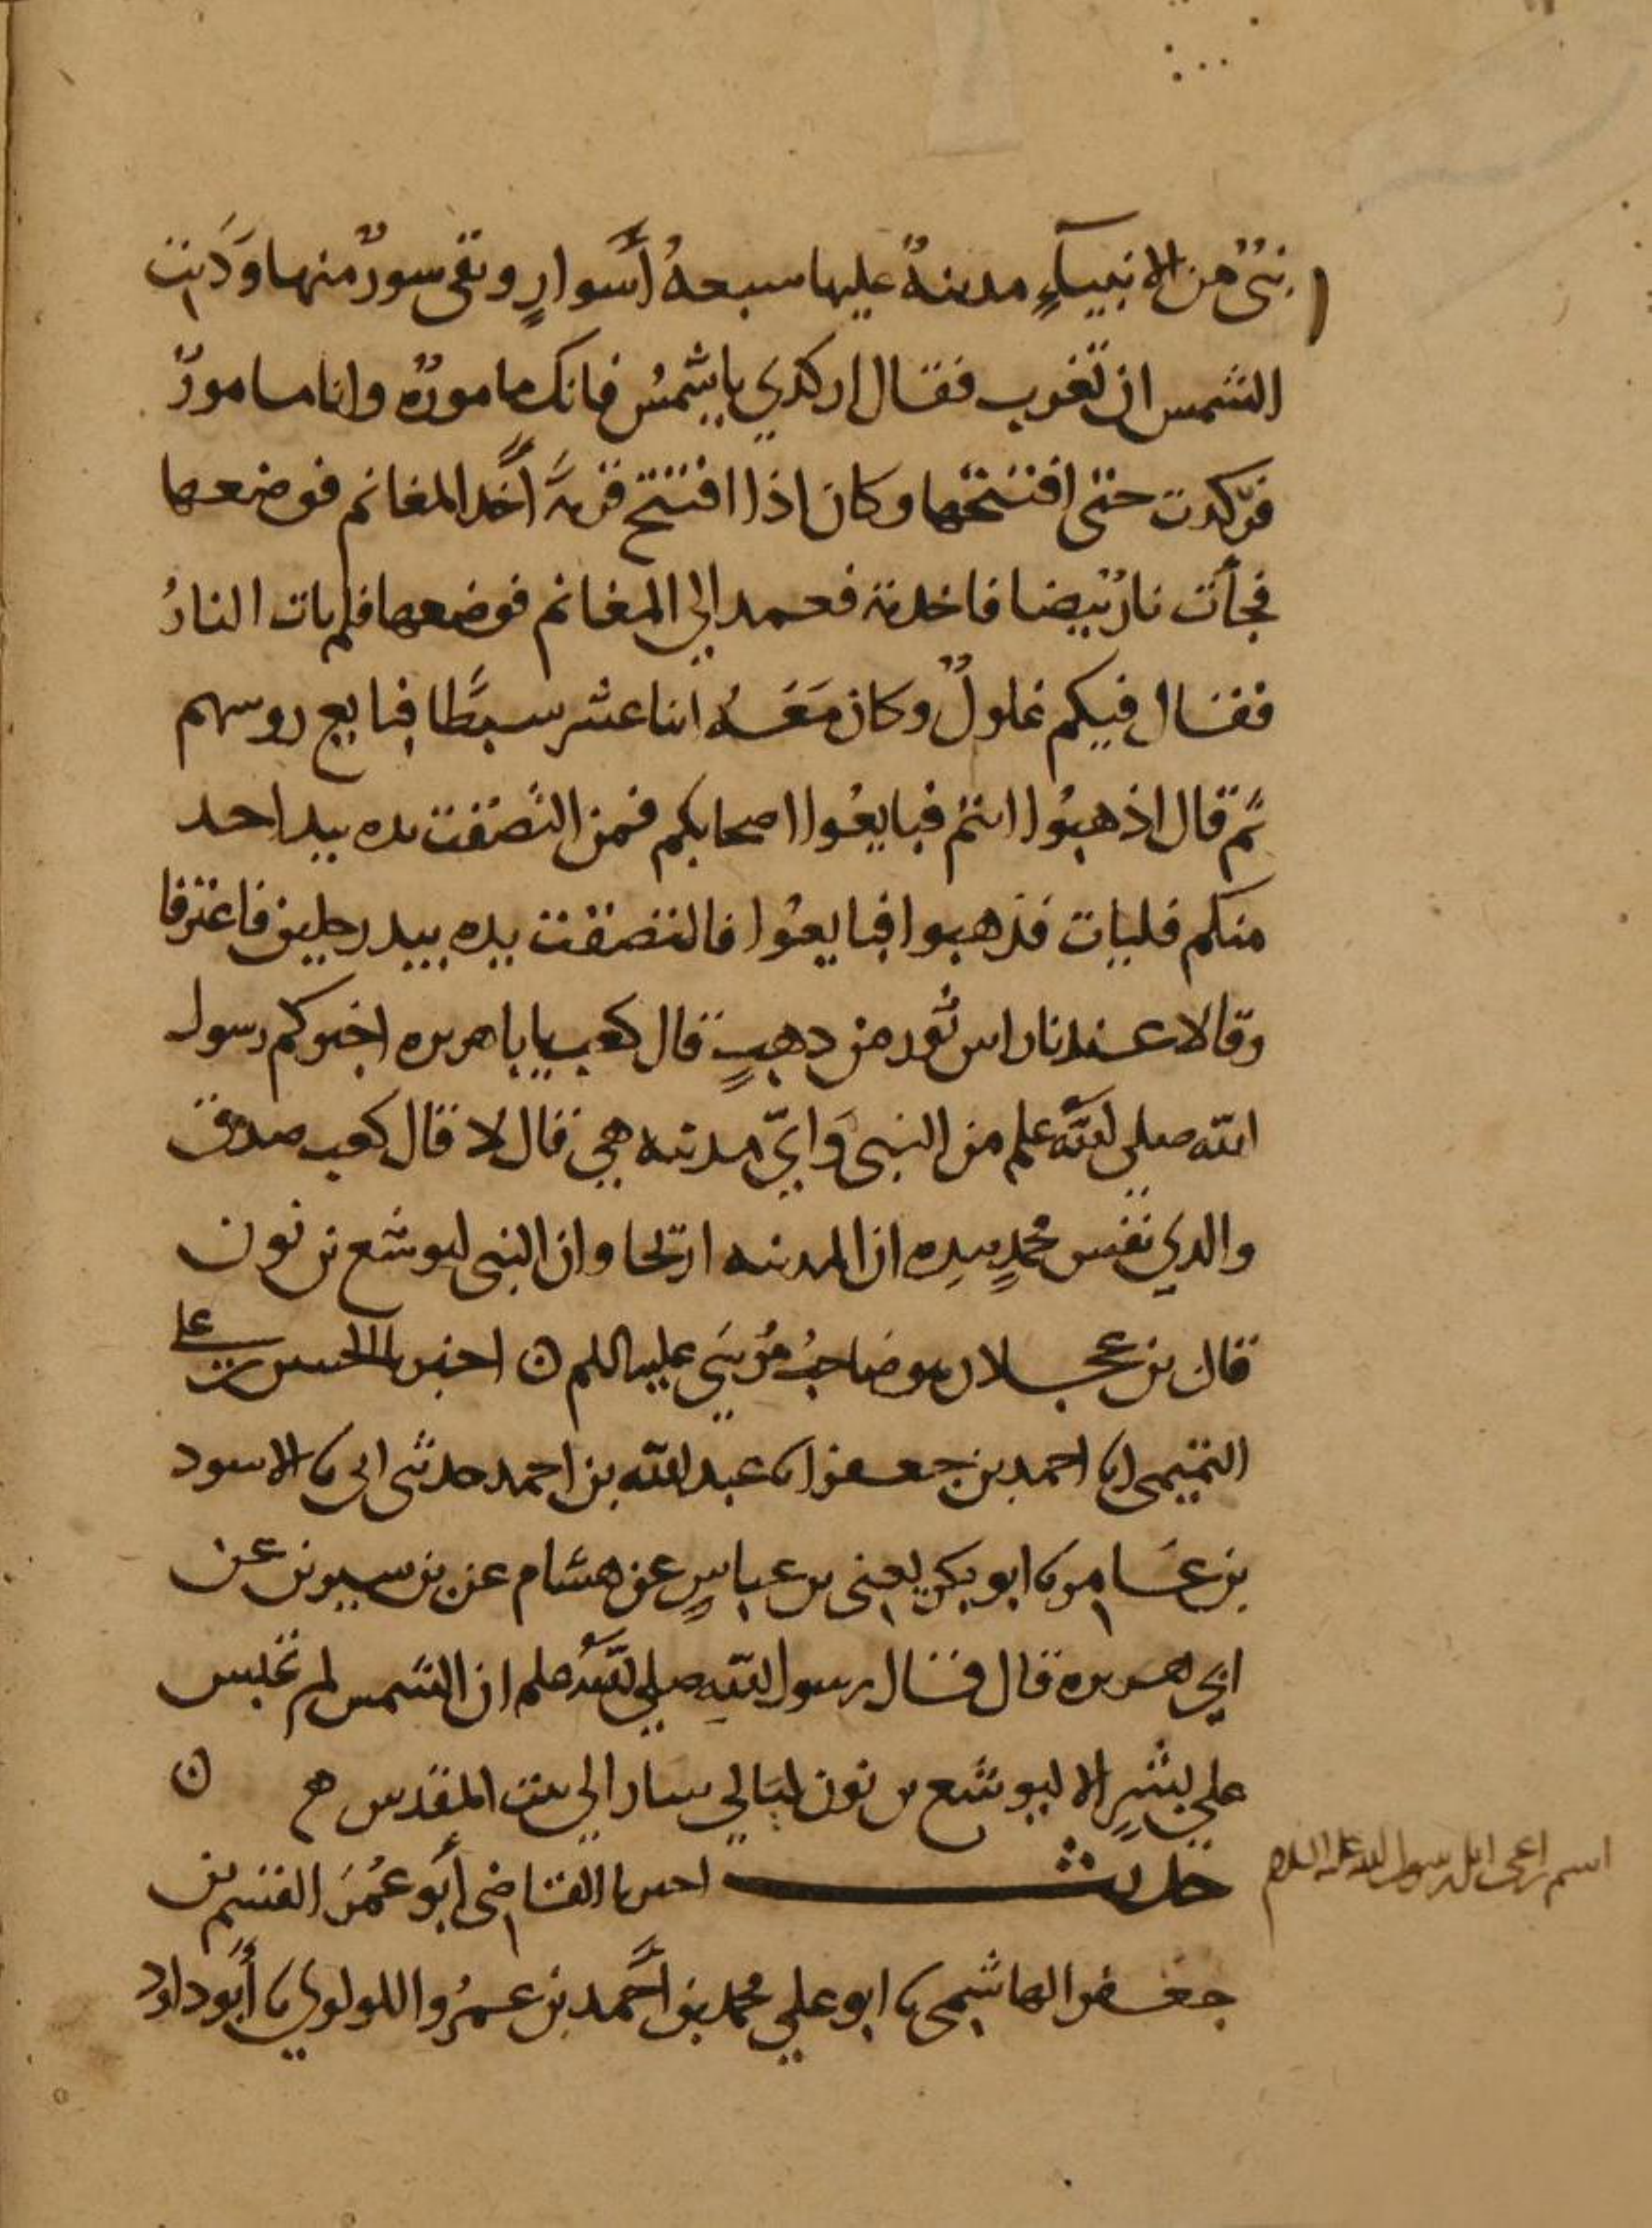 نبيٌّ من الانبيآءِ مدينةً عليها سبعةُ أسوارٍ وبقي سورٌ منها ودَنت
الشمس ان تغرب فقال اركدي يا شمسُ فانك مامورةٌ وانا مامورٌ
فركدت حتى افتتحها وكان اذا افتتح قريةً أخذ المغانم فوضعها
فجأت نارٌ بيضا فاخذته فعمد الي المغانم فوضعها فلم يات النارُ
فقال فيكم غلولٌ وكان مَعَهُ اثنا عشر سبطًا فبايع روسهم
ثم قال اذهبُوا انتم فبايعُوا اصحابكم فمن التصقت يده بيد احد
منكم فليات فذهبوا فبايعُوا فالتصقت يده بيد رجلين فاعترفا
وقالا عندنا راس ثور من ذهبٍ قال كعب يابا هريره اخبركم رسول
الله صلي الله علم من النبي وَايّ مدينه هي قال لا قال كعب صدق
والدي نفس محمدٍ بيدِه ان المدينه اريحا وان النبي ليوشع بن نون
قال بن عجلان هو صَاحبُ مُوسَي عليه السلم ن اخبرنا الحسن بن علي
التميمي انا احمد بن جعفر انا عبد الله بن احمد حدثني ابي نا الاسود
بن عَامر نا ابو بكر يعني بن عياشٍ عن هشام عن بن سيرين عن
ابي هريره قال قال رسول اللهِ صلي الله علم ان الشمس لم تحبس
علي بشرٍ الا ليوشع بن نون ليَالي سار الي بيت المقدس ن
حديث اخبرنا القاضي أبو عُمَرَ القسم بن
جعفر الهاشمي نا ابو علي محمد بن أحمد بن عمرُو اللولوي نا أبو داود
اسم راعي ابل رسول الله عليه السلام